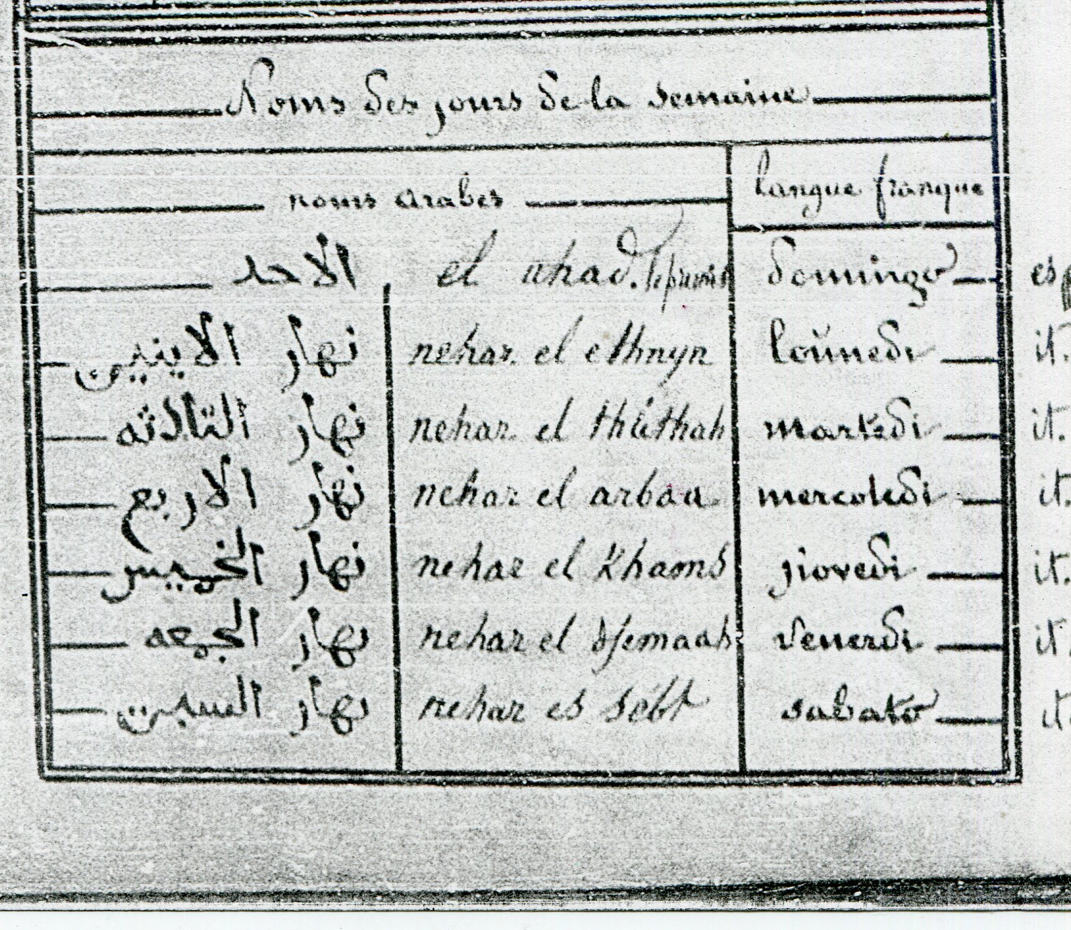 Noms des jours de la semaine
noms arabes langue franque
الاحد el ahad. domingo
نهار الاثنين nehar el ethnyn lounedi it.
نهار الثالاثه nehar el martedi it.
نهار الاربع nehar el arbaa mercoledi it.
نهار الخميس nehar el khams jiovedi it.
نهار الجمعه nehar el djemaah venerdi it.
نهار السبت nehar es sebt sabato it.